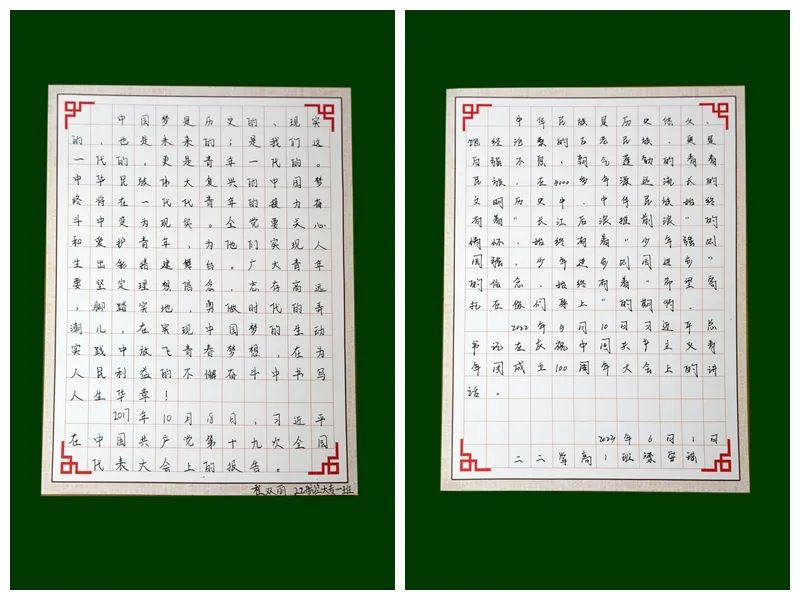 中国梦是历史的、现实
的，也是未来的；是我们这
一代的，更是青年一代的。
中华民族伟大复兴的中国梦
终将在一代代青年的接力奋
斗中变为现实。全党要关心
和爱护青年，为他们实现人
生出彩搭建舞台。广大青年
要坚定理想信念，志存高远
，脚踏实地，勇做时代的弄
潮儿，在实现中国梦的生动
实践中放飞青春梦想，在为
人民利益的不懈奋斗中书写
人生华章！
2017年10月18日，习近平
在中国共产党第十九次全国
代表大会上的报告。
双雨 22 大专一班
中华民族是历史悠久、
饱经沧桑的古老民族，更是
自强不息、朝气蓬勃的青春
民族，在5000多年源远流长的
文明历史中，中华民族始终
有着“长江后浪推前浪”的
情怀，始终有着“少年强则
国强，少年进步则国进步”
的信念，始终有着“希望寄
托在你们身上”的期盼。
2022年5月10日习近平总
书记在庆祝中国共产主义青
年团成立100周年大会上的讲
话。
2023年6月1日
二二学高1班梁